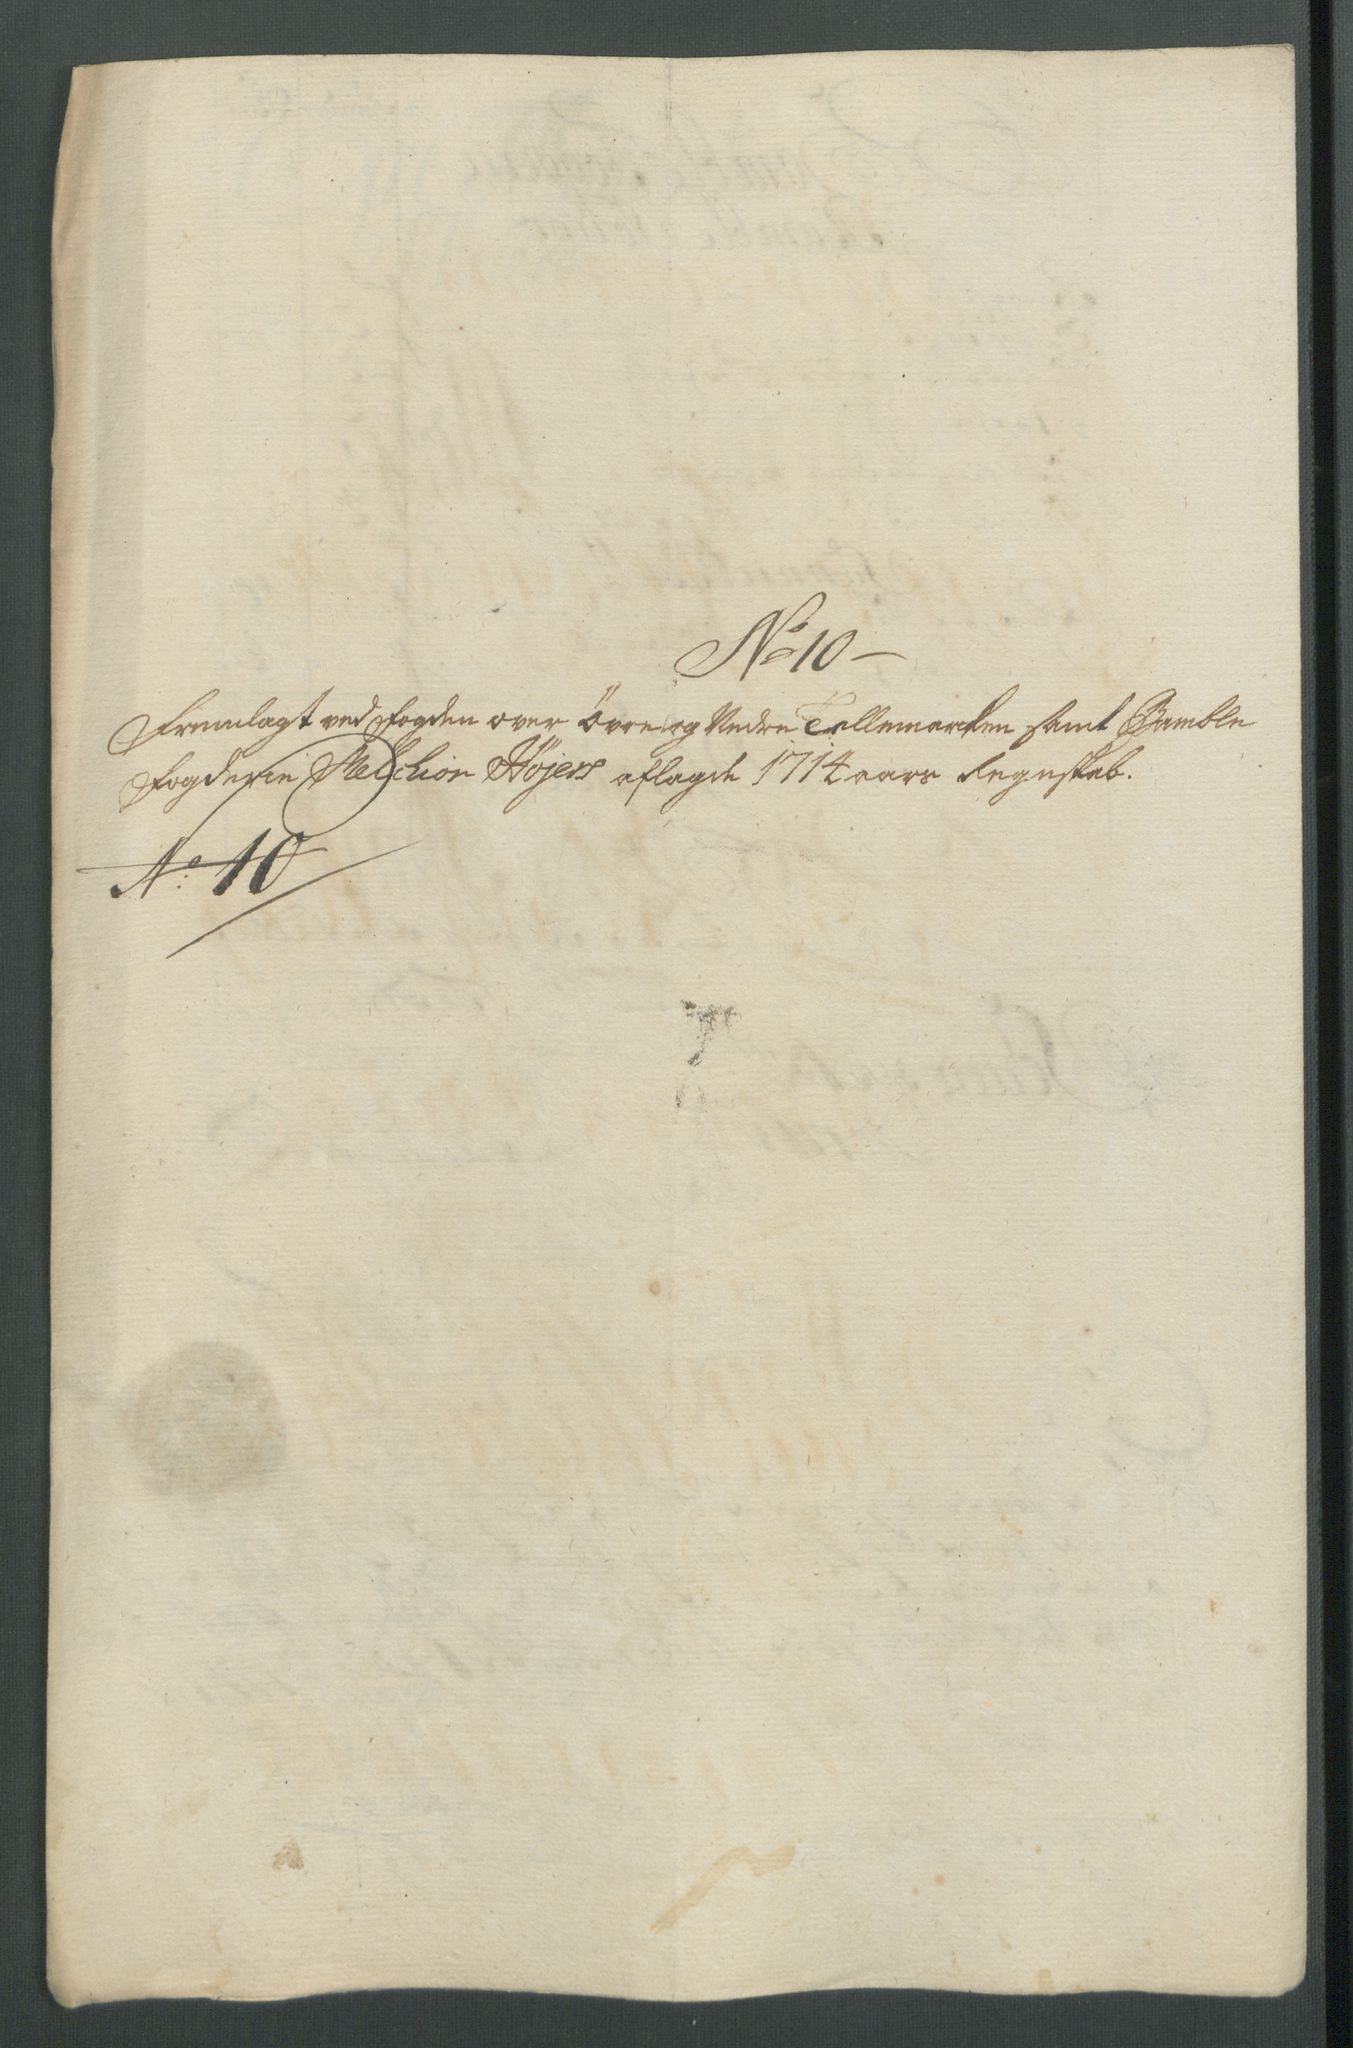 No 10 –
Fremlagt ved Fogden over Övre og Nedre Tellemarken samt Bamble
Fogderie Melchior Höjers aflagde 1714 aars Regnskab.
No: 10